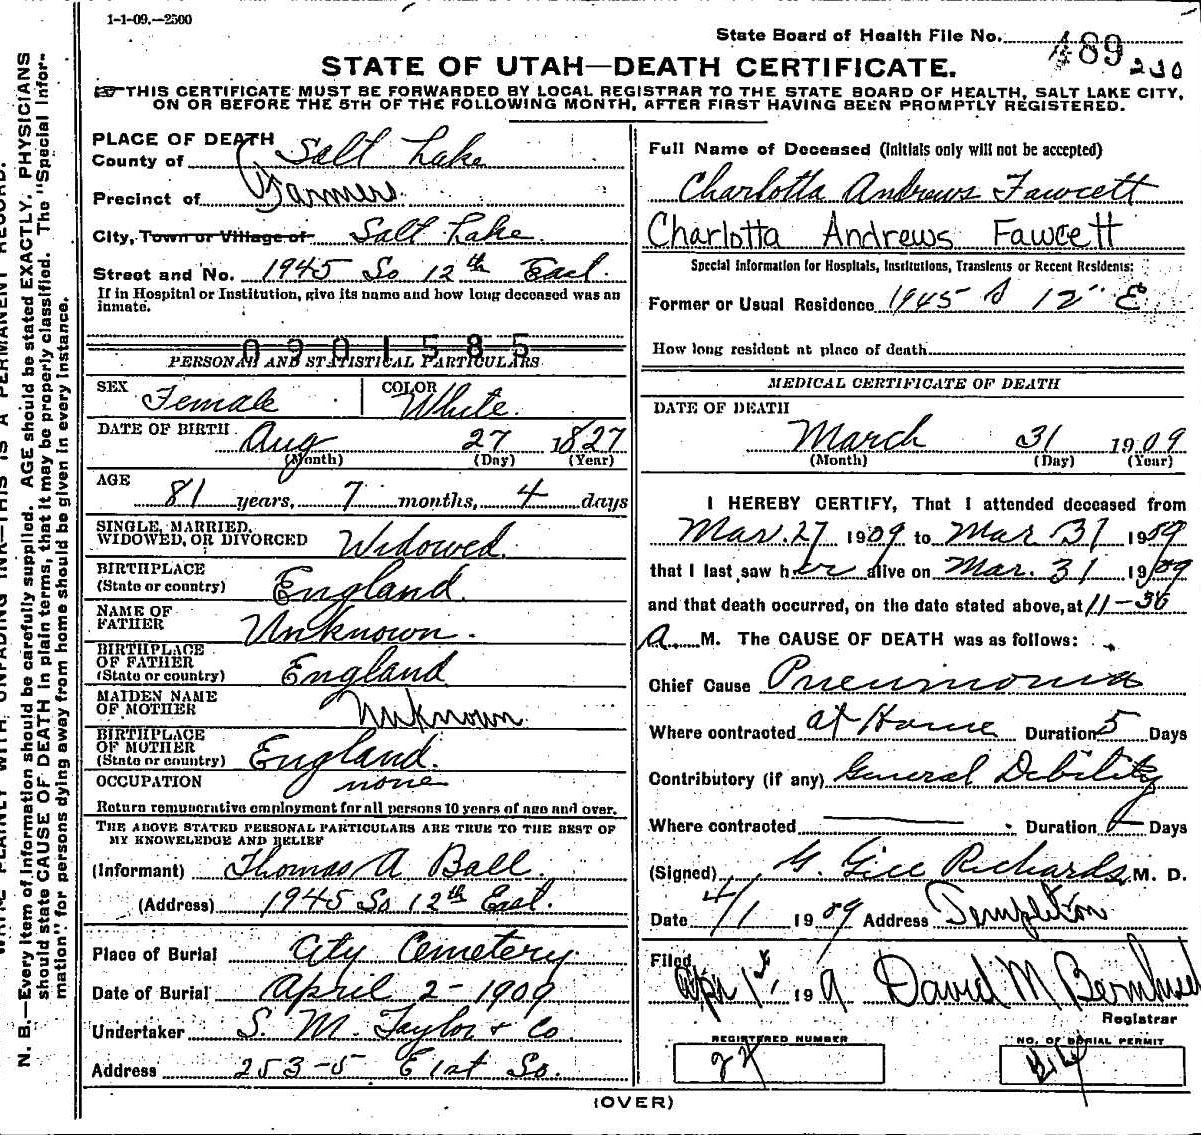 1-1-09.—2500
State Board of Health File No. 489 230
STATE OF UTAH—DEATH CERTIFICATE.
THIS CERTIFICATE MUST BE FORWARDED BY LOCAL REGISTRAR TO THE STATE BOARD OF HEALTH, SALT LAKE CITY,
ON OR BEFORE THE 5TH OF THE FOLLOWING MONTH, AFTER FIRST HAVING BEEN PROMPTLY REGISTERED.
PLACE OF DEATH
County of Salt Lake
Precinct of Farmers
City, Town or Village of Salt Lake
Street and No. 1945 So 12th East.
If in Hospital or Institution, give its name and how long deceased was an
inmate.
0901585
PERSONAL AND STATISTICAL PARTICULARS
SEX Female COLOR White.
DATE OF BIRTH Aug 27 1827
(Month) (Day) (Year)
AGE 81 years, 7 months, 4 days
SINGLE, MARRIED,
WIDOWED, OR DIVORCED Widowed.
BIRTHPLACE
(State or country) England.
NAME OF
FATHER Unknown.
BIRTHPLACE
OF FATHER
(State or country) England
MAIDEN NAME
OF MOTHER Unknown
BIRTHPLACE
OF MOTHER
(State or country) England.
OCCUPATION none
Return remunerative employment for all persons 10 years of age and over.
THE ABOVE STATED PERSONAL PARTICULARS ARE TRUE TO THE BEST OF
MY KNOWLEDGE AND BELIEF
(Informant) Thomas A Ball
(Address) 1945 So 12th East.
Place of Burial City Cemetery
Date of Burial April 2-1909
Undertaker S. M. Taylor & Co
Address 253-5 E 1st So.
Full Name of Deceased (Initials only will not be accepted)
Charlotta Andrews Fawcett
Charlotta Andrews Fawcett
Special Information for Hospitals, Institutions, Transients or Recent Residents:
Former or Usual Residence 1945 S 12" E
How long resident at place of death
MEDICAL CERTIFICATE OF DEATH
DATE OF DEATH
March 31 1909
(Month) (Day) (Year)
I HEREBY CERTIFY, That I attended deceased from
Mar. 27 1909 to Mar 31 1909
that I last saw her alive on Mar. 31 1909
and that death occurred, on the date stated above, at 11-30
a M. The CAUSE OF DEATH was as follows:
Chief Cause Pneumonia
Where contracted at Home Duration 5 Days
Contributory (if any) General Debility
Where contracted Duration Days
(Signed) G. Gill Richards M. D.
Date 4/1 1909 Address Templeton
Filed Apr 1st, 1909 David M Bernhisel
Registrar
REGISTERED NUMBER
NO. OF BURIAL PERMIT
(OVER)
N. B.—Every item of information should be carefully supplied. AGE should be stated EXACTLY. PHYSICIANS
should state CAUSE OF DEATH in plain terms, that it may be properly classified. The "Special Infor-
mation" for persons dying away from home should be given in every instance.